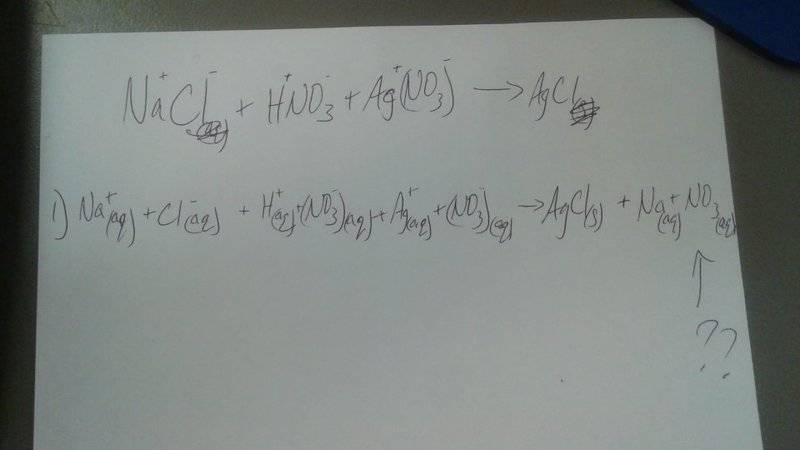 Na⁺Cl⁻(aq) + H⁺NO₃⁻ + Ag⁺(NO₃⁻) → AgCl
1) Na⁺(aq) + Cl⁻(aq) + H⁺(aq) + (NO₃⁻)(aq) + Ag⁺(aq) + (NO₃⁻)(aq) → AgCl(s) + Na⁺(aq) NO₃(aq)
↑
??